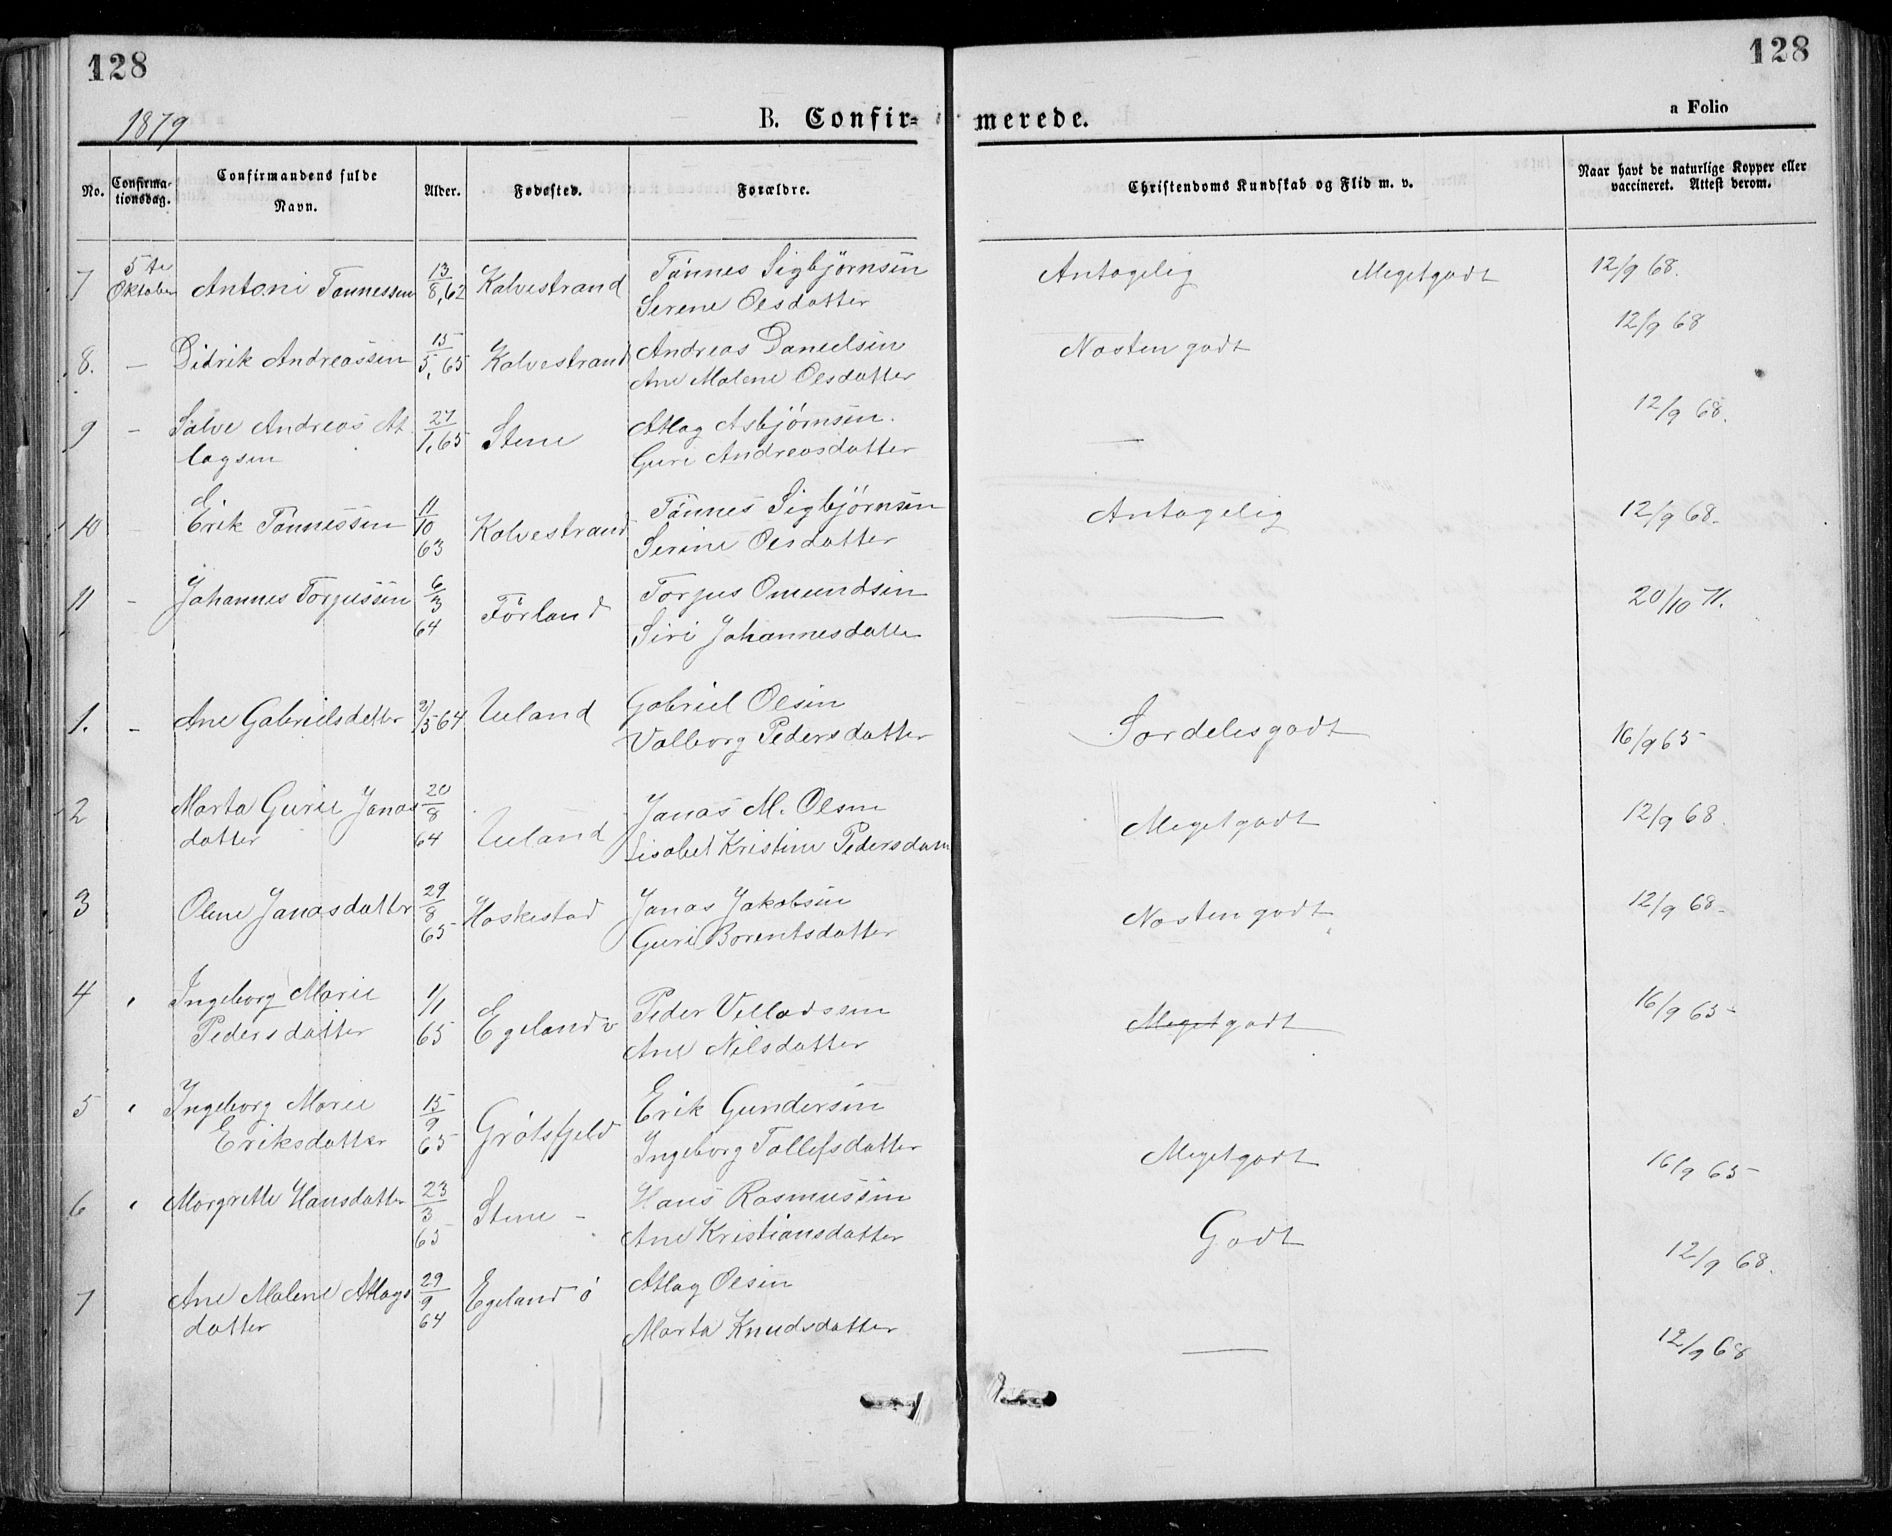 128
128
1879
B. Confir- merede.
a Folio
No.
Confirma-
tionsdag.
Confirmandens fulde
Navn.
Alder.
Fødested.
Forældre.
Christendoms Kundskab og Flid m. v.
Naar havt de naturlige Kopper eller
vaccineret. Attest derom.
7 5te Oktober Antoni Tønnessen 13/8, 62 Kalvestrand Tønnes Sigbjørnsen Antagelig Megetgodt 12/9 68.
Serene Olsdatter
8. — Didrik Andreassen 15/5, 65 Kalvestrand Andreas Danielsen Næsten godt 12/9 68
Ane Malene Olsdatter
9 — Salve Andreas At 27/1, 65 Stene Atlag Asbjørnsen. — 12/9 68.
lagsen Guri Andreasdatter
10 Erik Tønnessen 11/10 63 Kalvestrand Tønnes Sigbjørnsen Antagelig 12/9 68.
Serine Olsdatter
11 - Johannes Torjussen 6/3 64 Førland Torjus Omundsen — 20/10 71.
Siri Johannesdatter
1. - Ane Gabrielsdatter 2/5 64 Ueland Gabriel Olsen Særdelesgodt 16/9 65
Valborg Pedersdatter
2 Marta Gurie Jonas 20/8 64 Ueland Jonas M. Olsen Megetgodt 12/9 68.
datter Lisabet Kristine Pedersdatter
3 Olene Jonasdatter 29/8 65 Haskestad Jonas Jakobsen Næsten godt 12/9 68
Guri Borentsdatter
4 " Ingeborg Marie 1/1 65 Egeland v Peder Villadssen Megetgodt 16/9 65
Pedersdatter Ane Nilsdatter
5 " Ingeborg Marie 15/9 65 Grøtsfjeld Erik Gundersen Megetgodt 16/9 65
Eriksdatter Ingeborg Tollefsdatter
6 " Margrethe Hansdatter 23/3 65 Stene - Hans Rasmussen Godt 12/9 68.
Ane Kristiansdatter
7 Ane Malene Atlags 29/9 64 Egeland ø Atlag Olsen — 12/9 68
datter Marta Knudsdatter